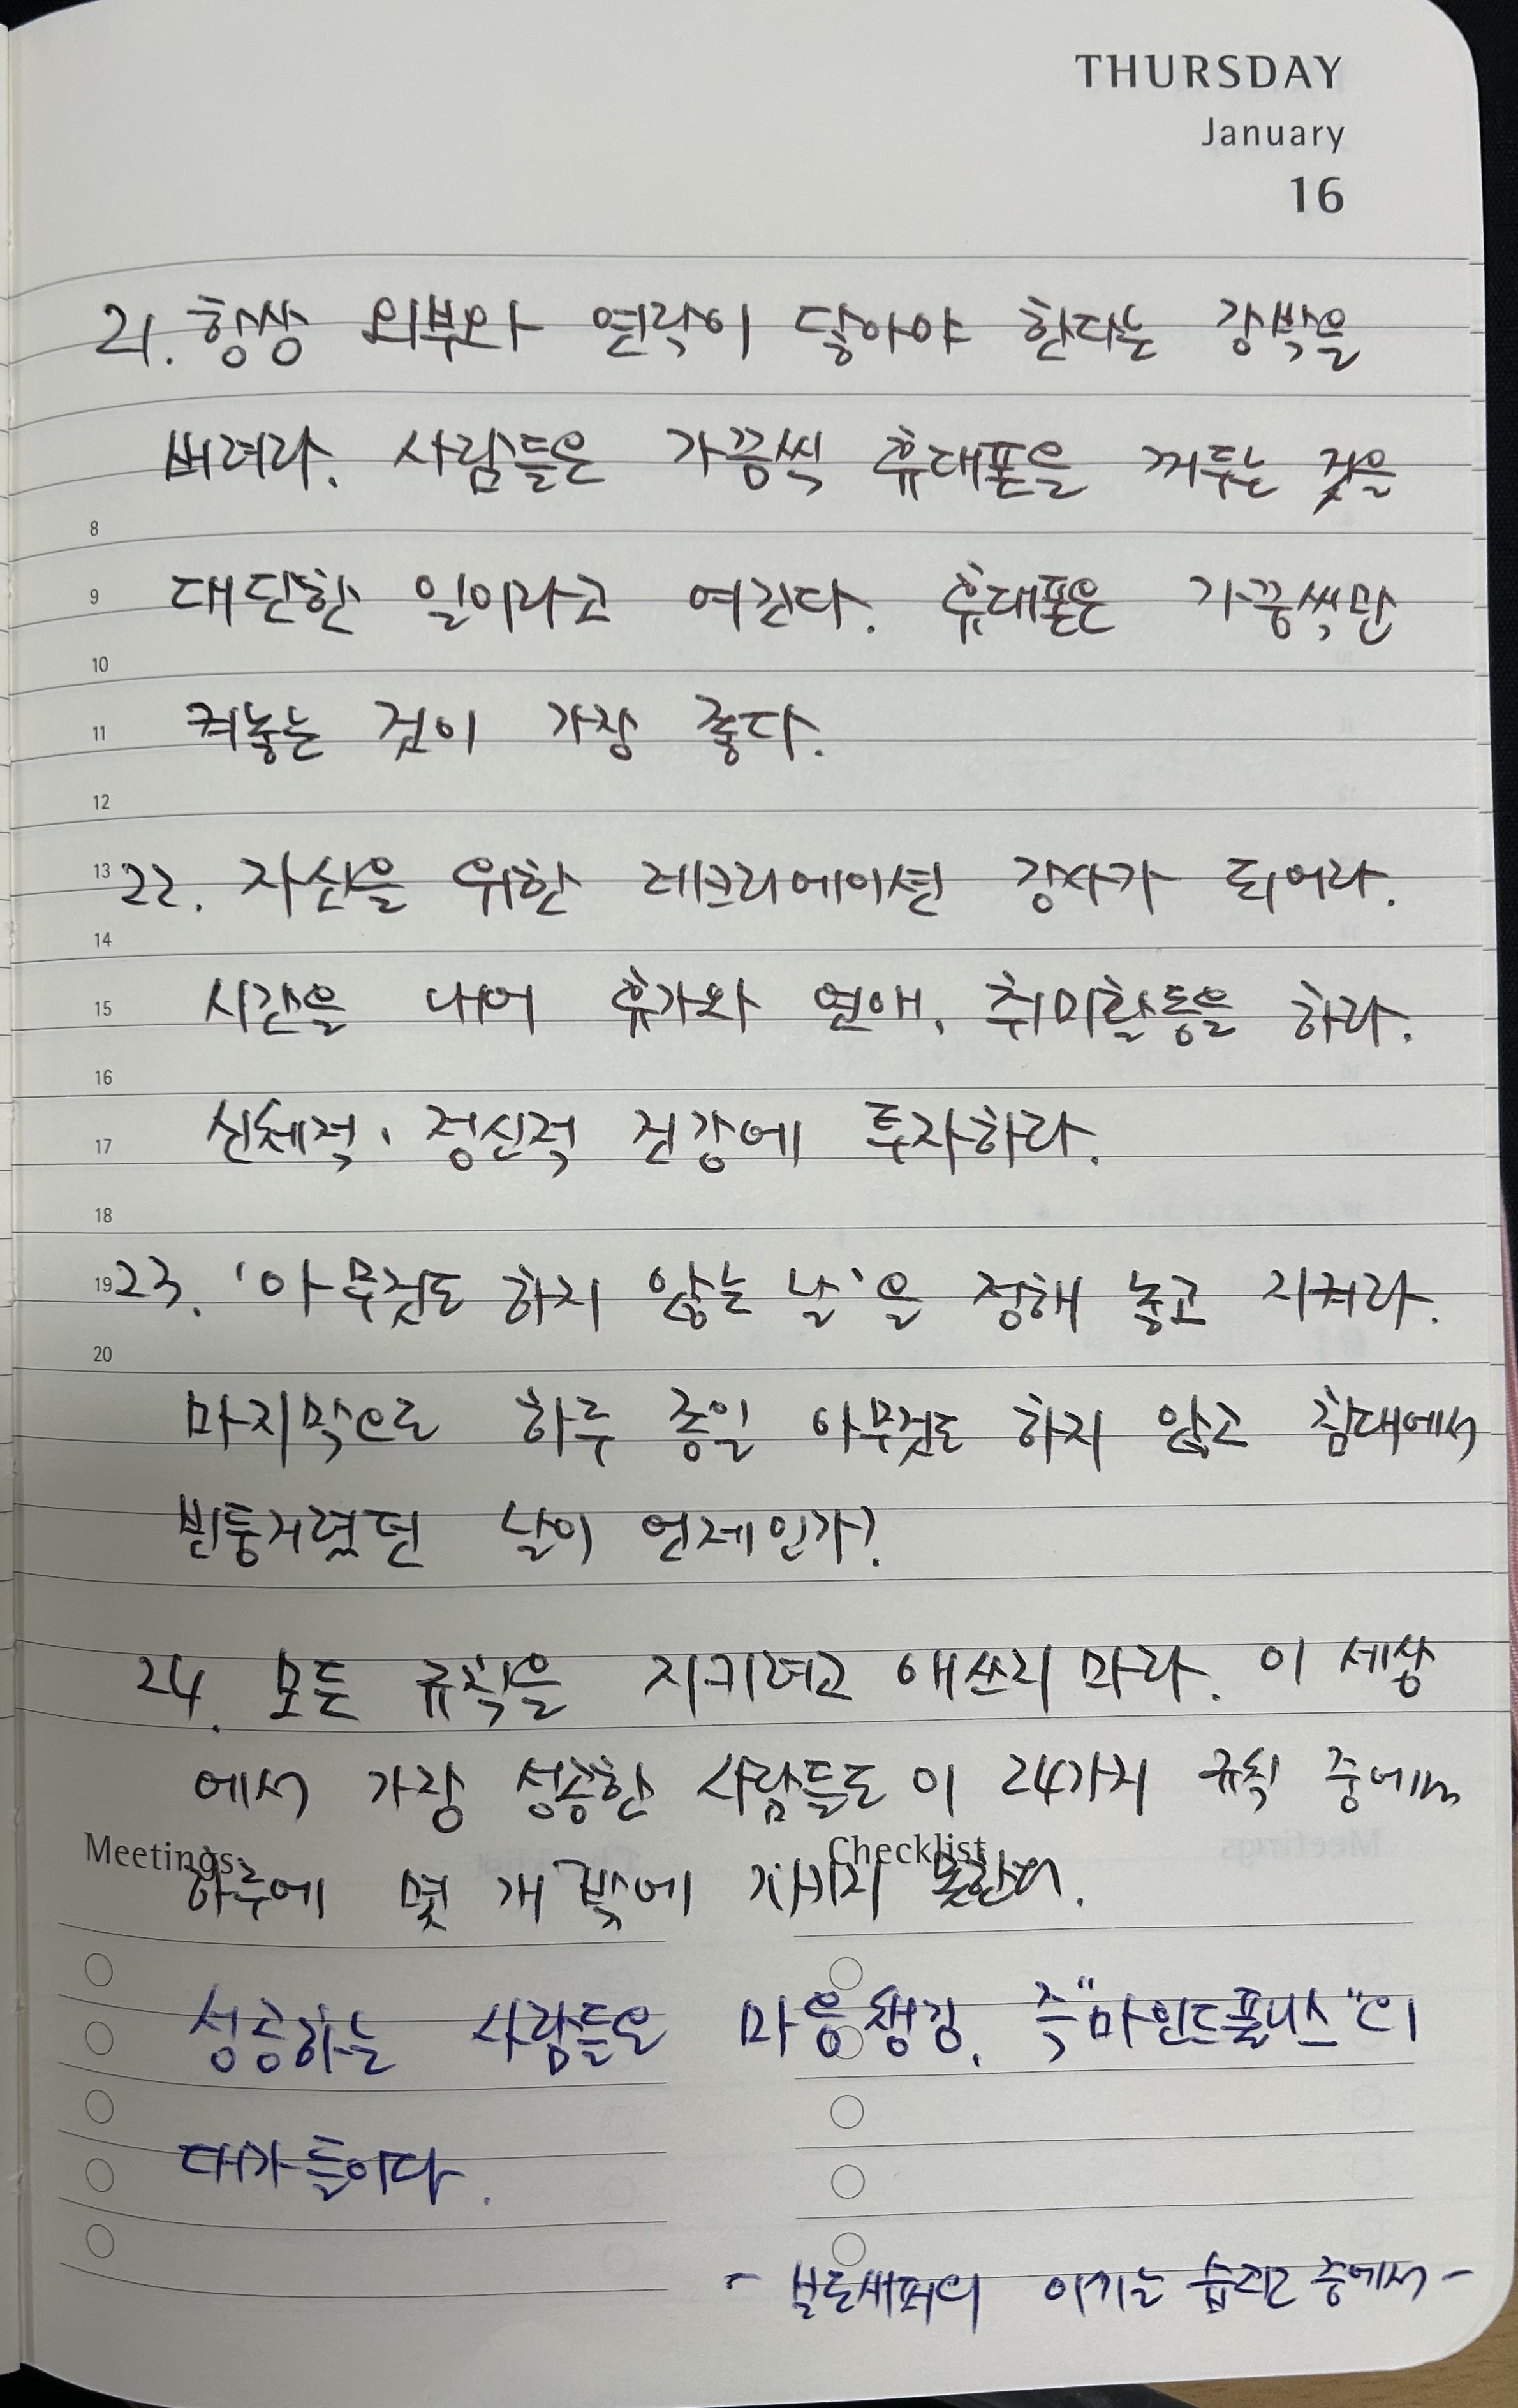 THURSDAY
January
16
21. 항상 외부와 연락이 닿아야 한다는 강박을
버려라. 사람들은 가끔씩 휴대폰을 꺼두는 것을
8
대단한 일이라고 여긴다. 휴대폰은 가끔씩만
9
10
켜놓는 것이 가장 좋다.
11
12
13
22. 자신을 위한 레크리에이션 강사가 되어라.
14
시간을 내어 휴가와 연애, 취미활동을 하라.
15
16
신체적, 정신적 건강에 투자하라.
17
18
19
23. '아무것도 하지 않는 날'을 정해 놓고 지켜라.
20
마지막으로 하루 종일 아무것도 하지 않고 침대에서
빈둥거렸던 날이 언제인가?
24. 모든 규칙을 지키려고 애쓰지 마라. 이 세상
에서 가장 성공한 사람들도 이 24가지 규칙 중에서
Meetings
Checklist
하루에 몇 개 밖에 지키지 못한다.
성공하는 사람들은 마음챙김, 즉 "마인드풀니스"의
대가들이다.
- 보도섀퍼의 이기는 습관 중에서 -